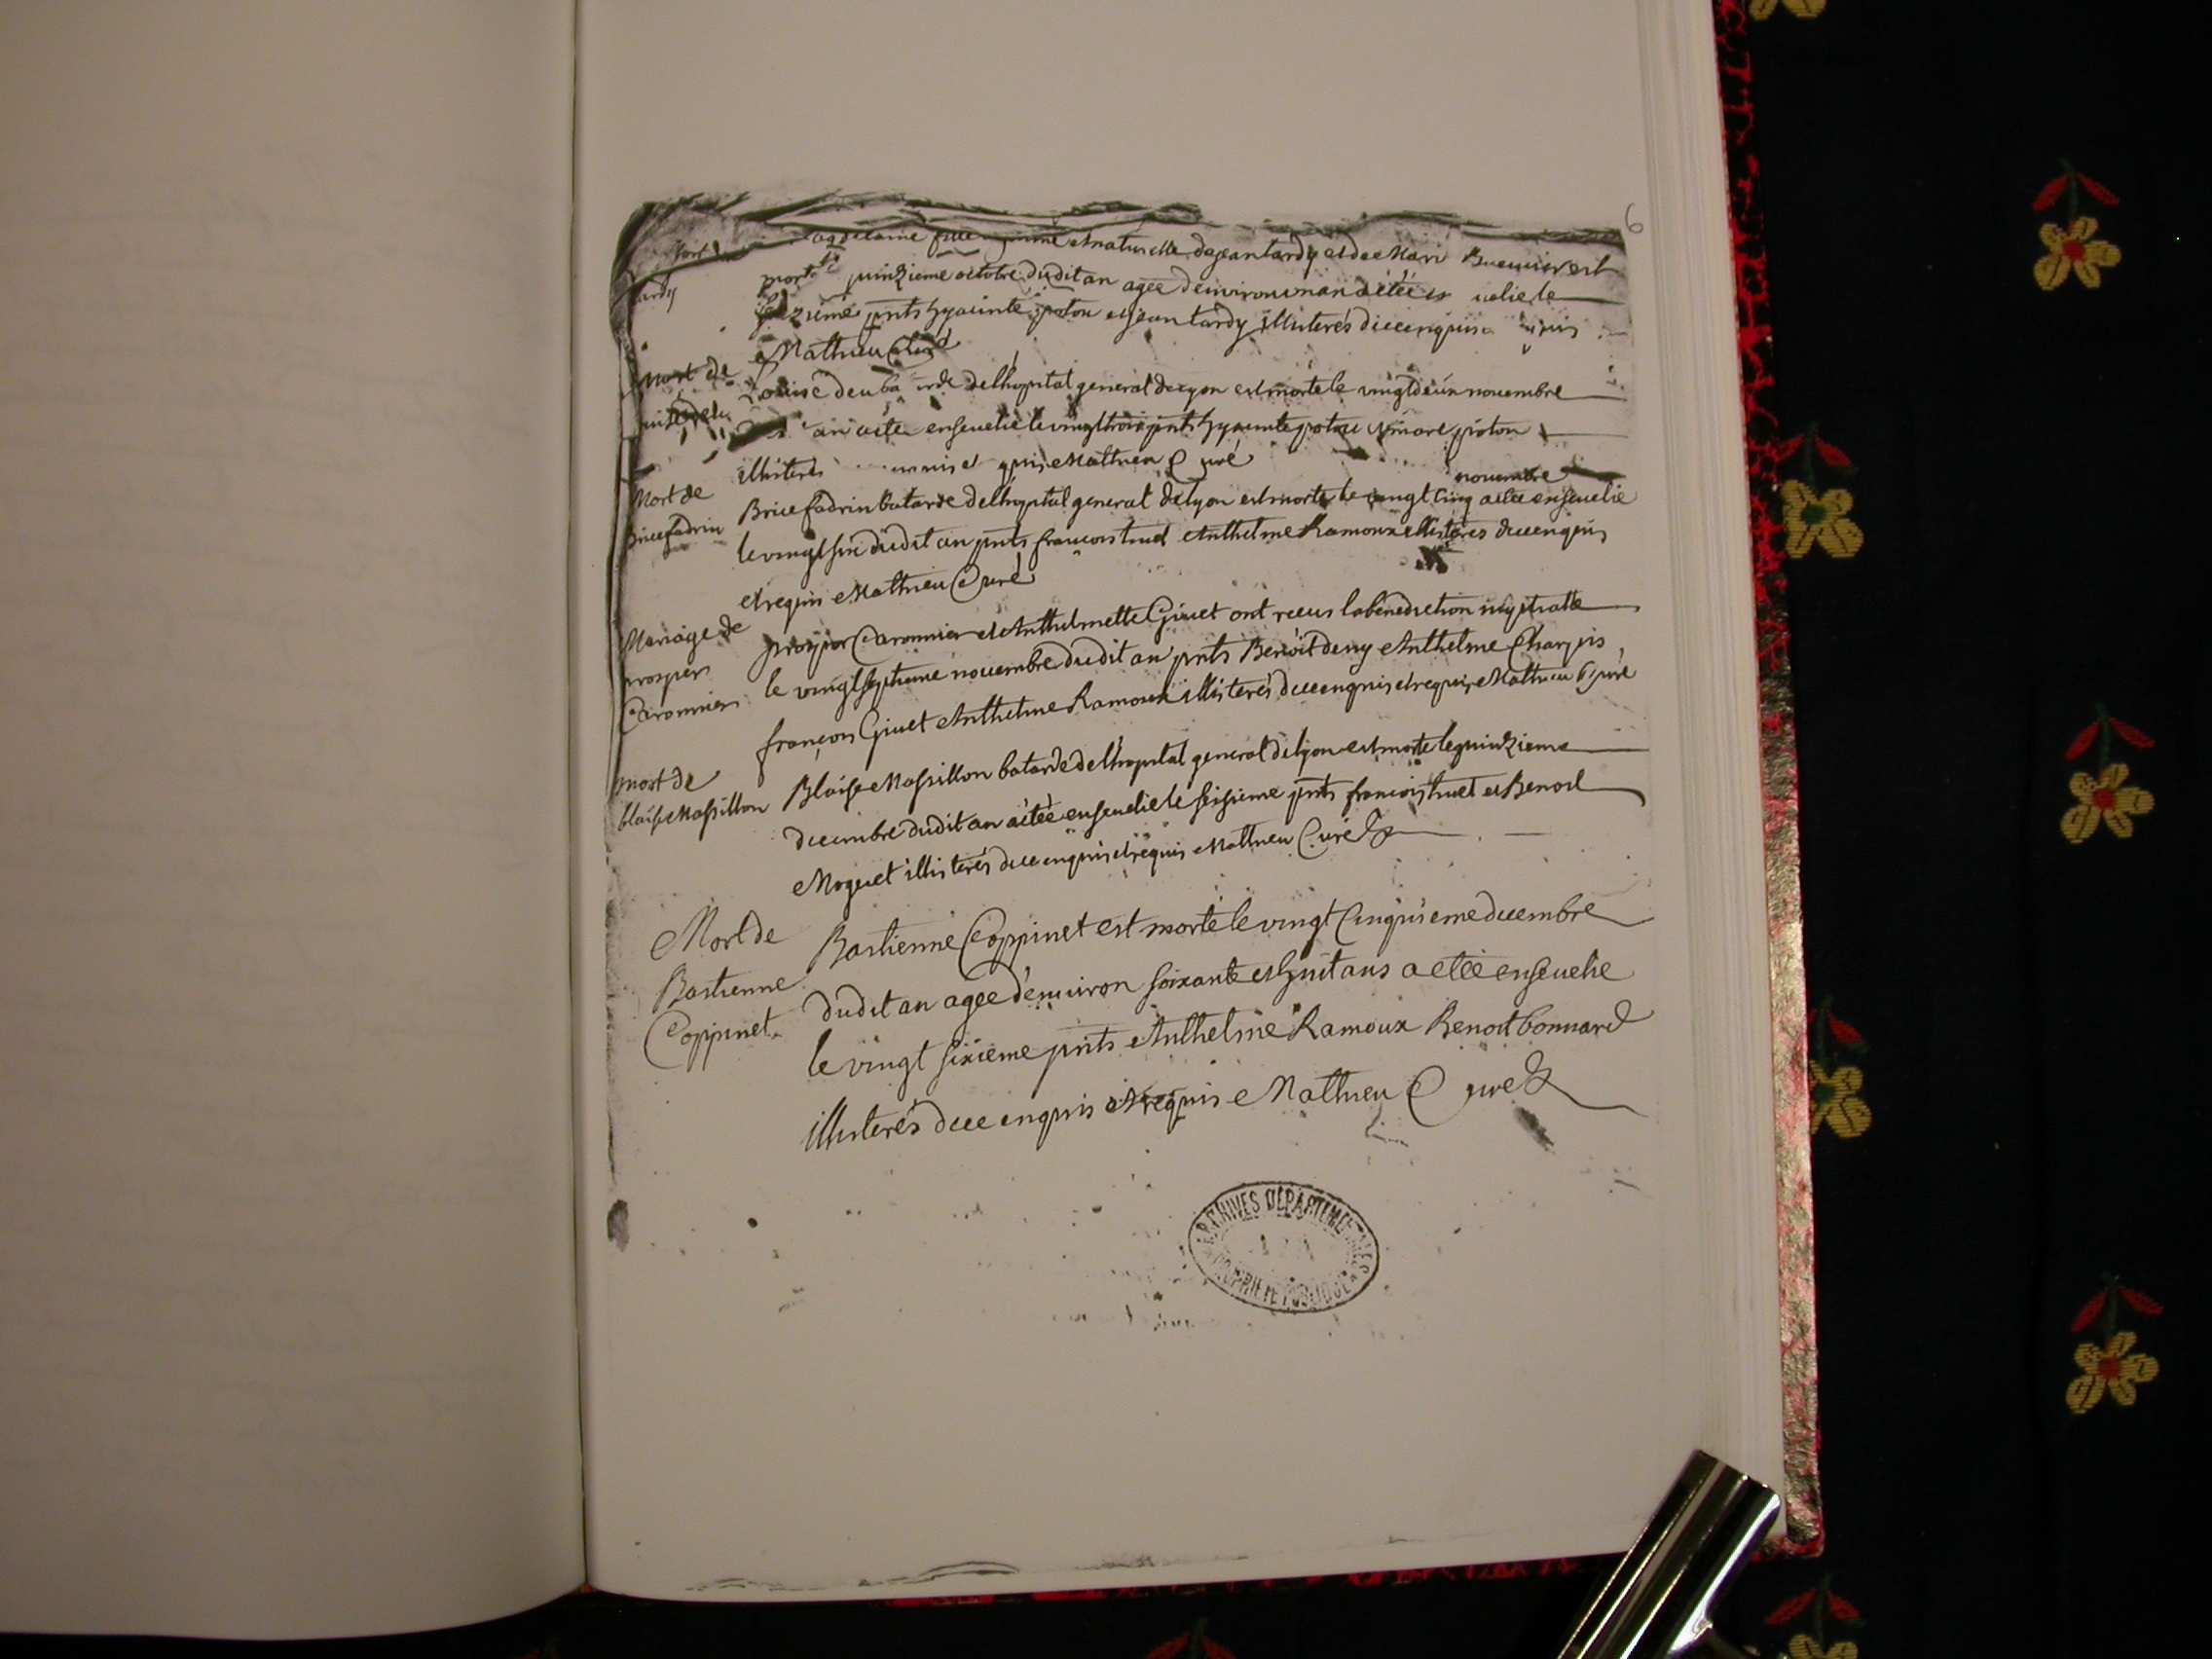 6
Mort
tardy
fille et naturelle de jean tardy et de Mari est
morte quinzieme octobre dudit an agee denviron un an a étée
prnts hyacinte poton et jean tardy illisterés de ce enquis
Mathieu Curé
Mort de
Louise deu de lhopital general de lyon est morte le vingtdeux nouembre
an enseuelie le vingttrois prnts hyacinte poton poton
illisterés Mathieu Curé
Mort de
Brice fadrin
nouembre
Brice fadrin batarde delhopital general de lyon est morte le vingt cinq a etée enseuelie
le vingt six dudit an prnts francois truel Anthelme Ramoux illisterés de ce enquis
et requis Mathieu Curé
Mariage de
prosper
Caronnier
prosper Caronnier et Anthelmette Giuet ont receus la benediction nuptialle
le vingt septieme nouembre dudit an prnts Benoit deny Anthelme Charpis
françois Giuet Anthelme Ramoux illisterés de ce enquis et requis Mathieu Curé
mort de
blaise Massillon
Blaise Massillon batarde de lhopital general de lyon est morte le quinzieme
decembre dudit an a étée enseuelie le seisieme prnts francois truet et Benoit
Moguet illisterés de ce enquis et requis Mathieu Curé
Mort de
Bastienne
Coppinet
Bastienne Coppinet est morte le vingt Cinquieme decembre
dudit an agee denuiron soixante et huit ans a etée enseuelie
le vingt sixieme prnts Anthelme Ramoux Benoit bonnard
illisterés de ce enquis et requis Mathieu Curé
ARCHIVES DÉPARTEMENTALES
AIN
PROPRIÉTÉ PUBLIQUE